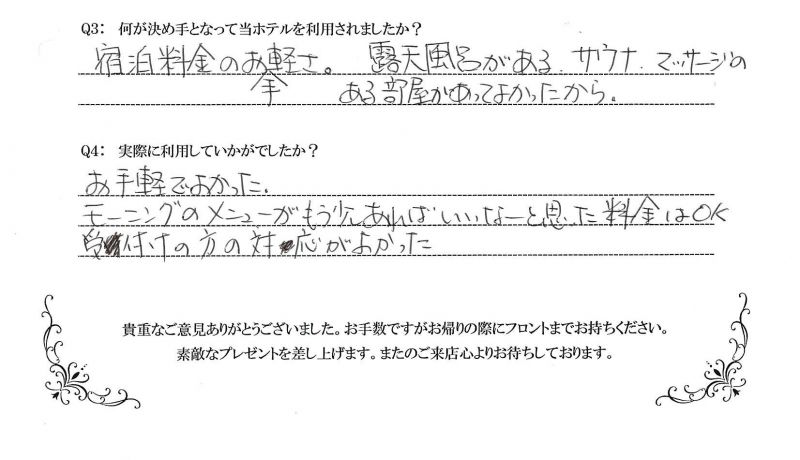 Q3: 何が決め手となって当ホテルを利用されましたか？
宿泊料金のお軽さ。 露天風呂がある、サウナ、マッサージの
ある部屋があってよかったから。
Q4: 実際に利用していかがでしたか？
お手軽でよかった。
モーニングのメニューがもう少しあればいいなーと思った料金はOK
受付けの方の対応がよかった
貴重なご意見ありがとうございました。お手数ですがお帰りの際にフロントまでお持ちください。
素敵なプレゼントを差し上げます。またのご来店心よりお待ちしております。